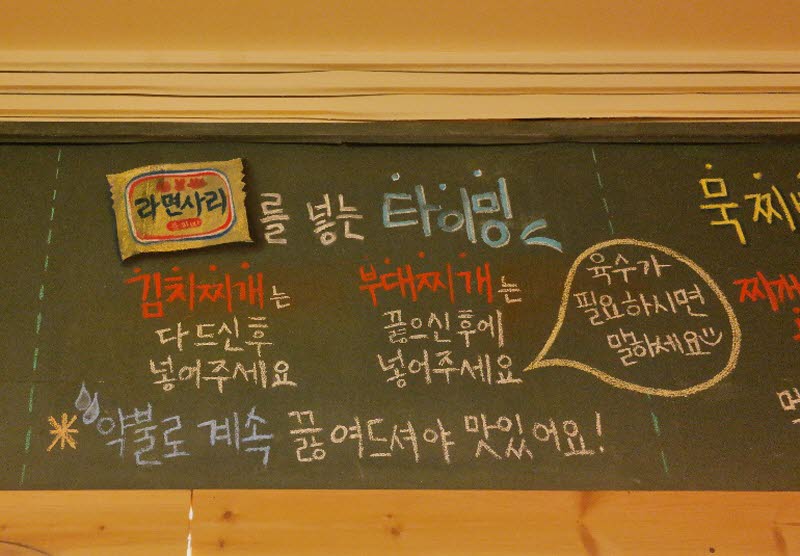 라면사리를 넣는 타이밍
김치찌개는
다 드신 후
넣어주세요
부대찌개는
끓으신 후에
넣어주세요
육수가
필요하시면
말하세요
약불로 계속 끓여드셔야 맛있어요!
묵찌
찌개